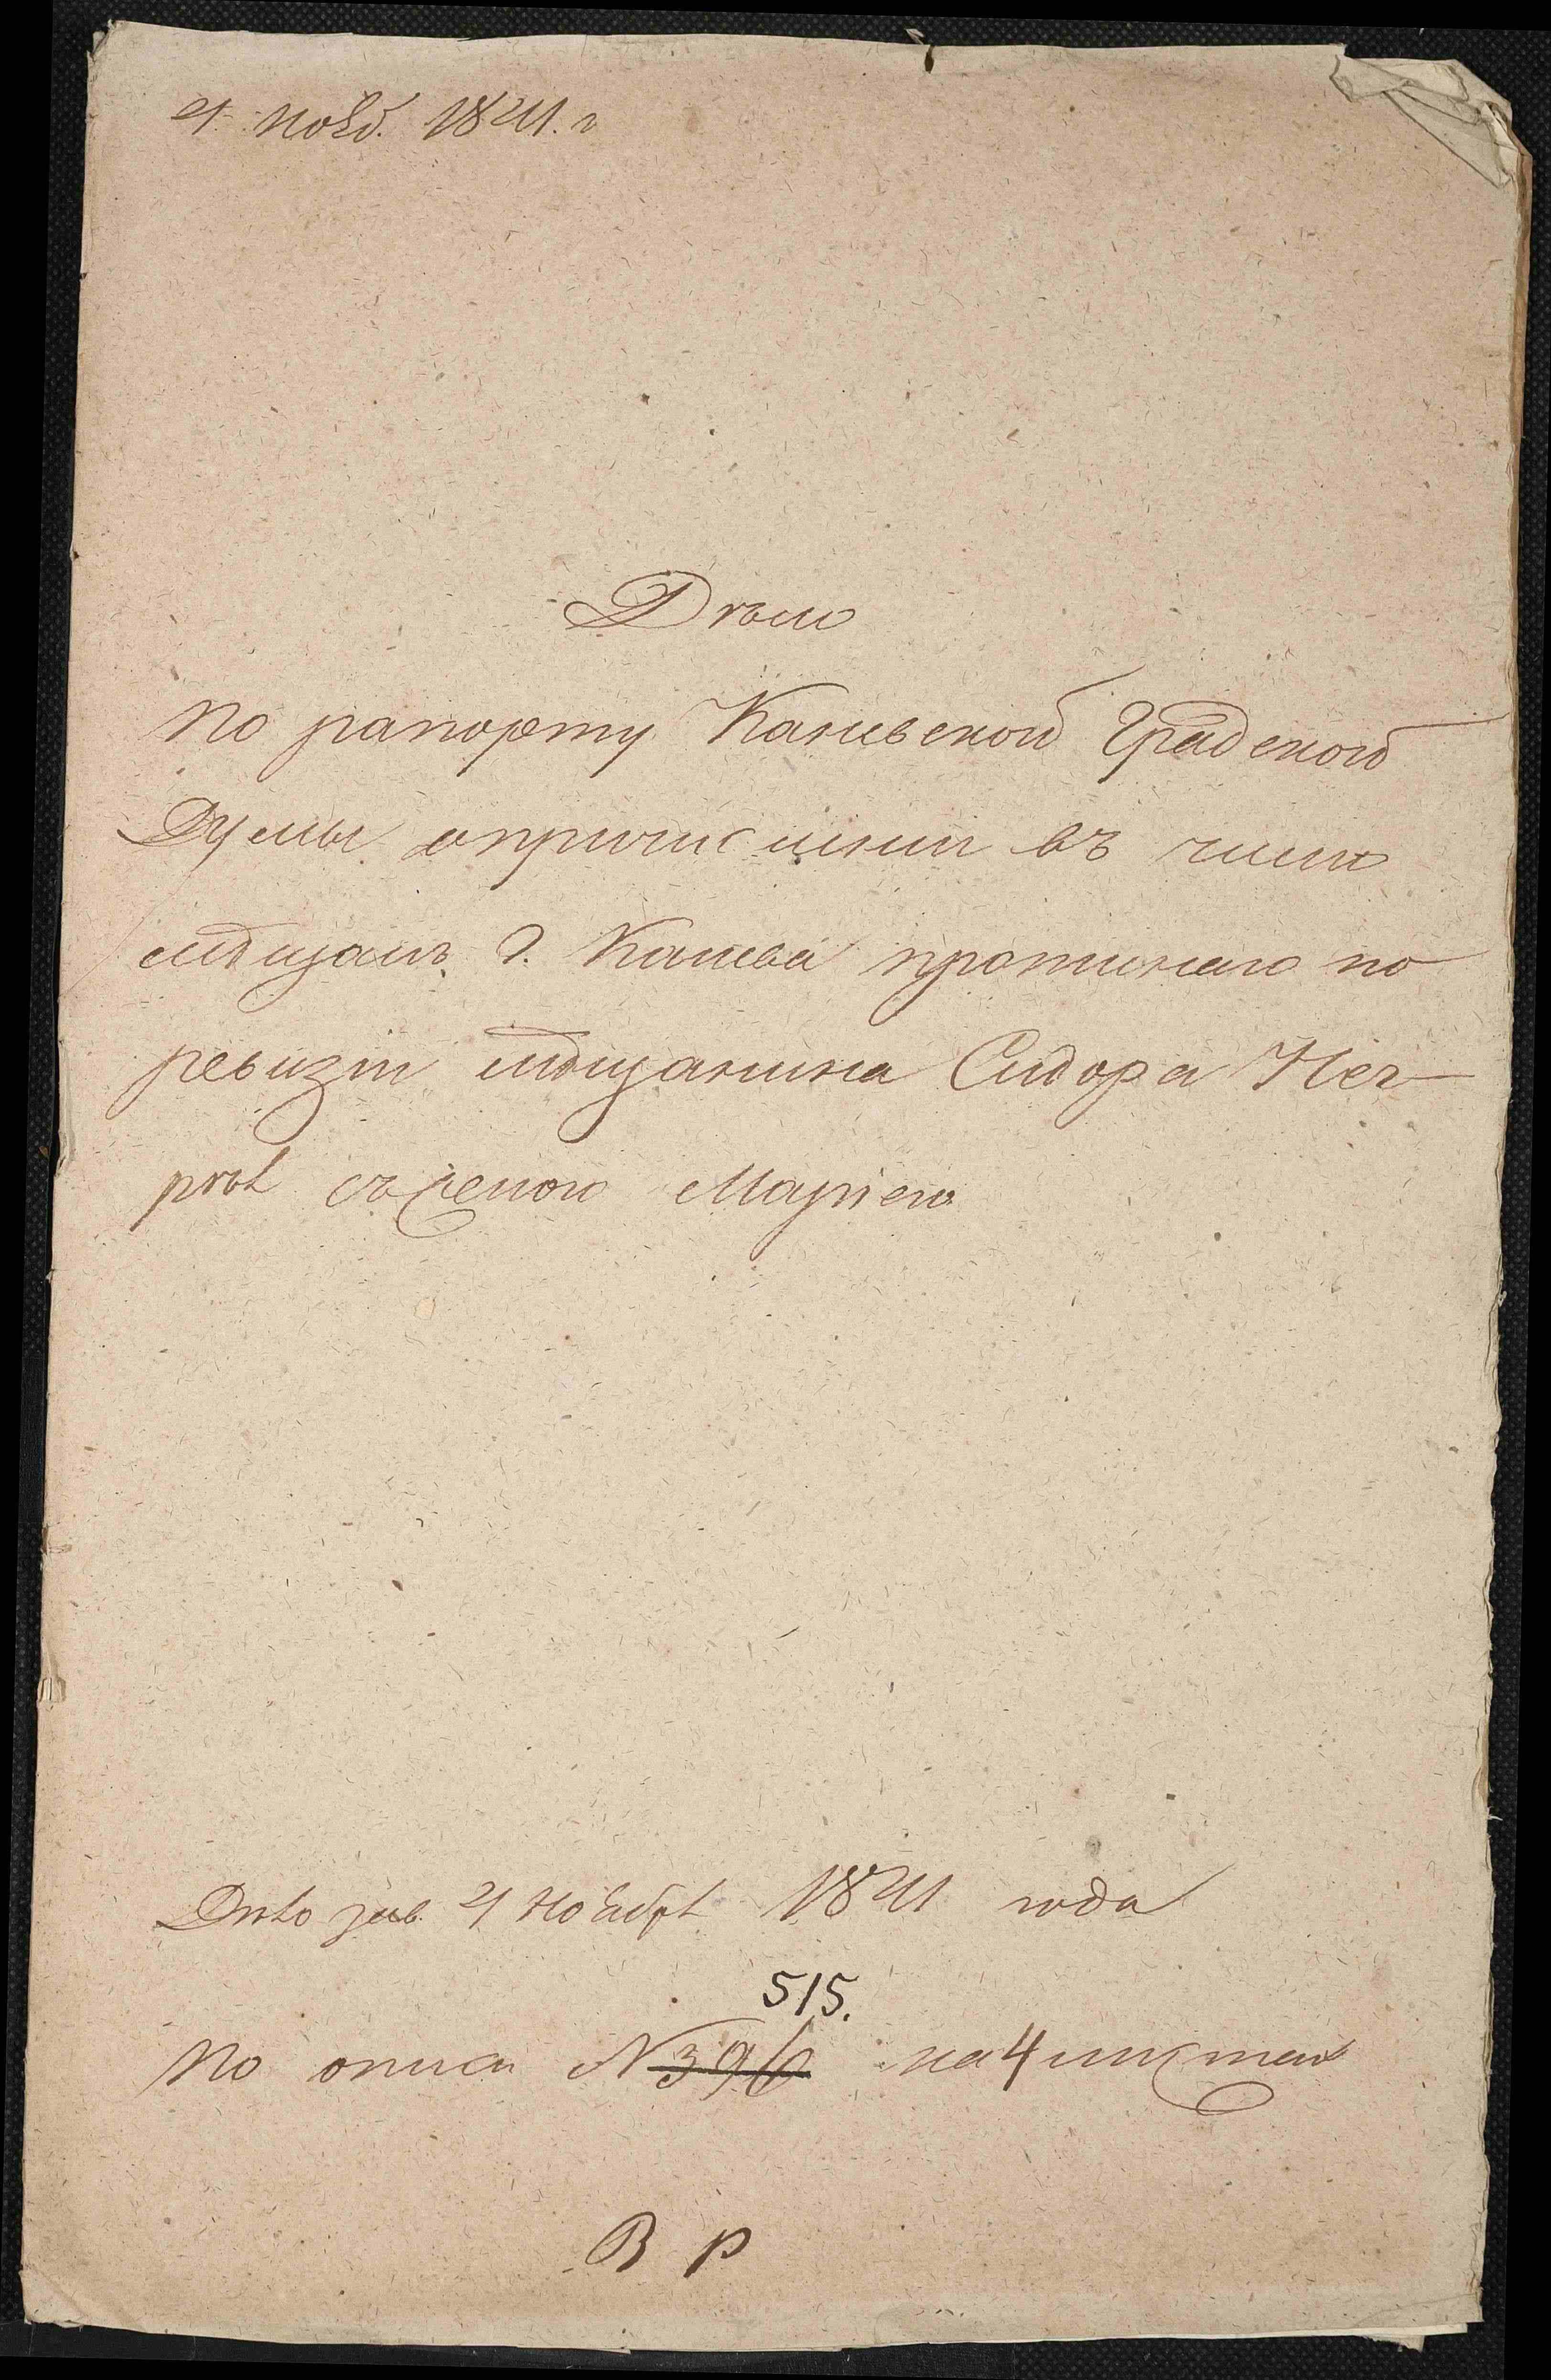 21 Нояб. 1841. г
Дѣло
По рапорту Каневской Градской
Думы опричисленіи въ число
мѣщанъ г. Канева пропис­наго по
ревизіи мѣщанина Сидора Нег
ря съ женою Маріею
21 Ноября 1841 года
515.
По описи N 396 на 4 листах
В Р